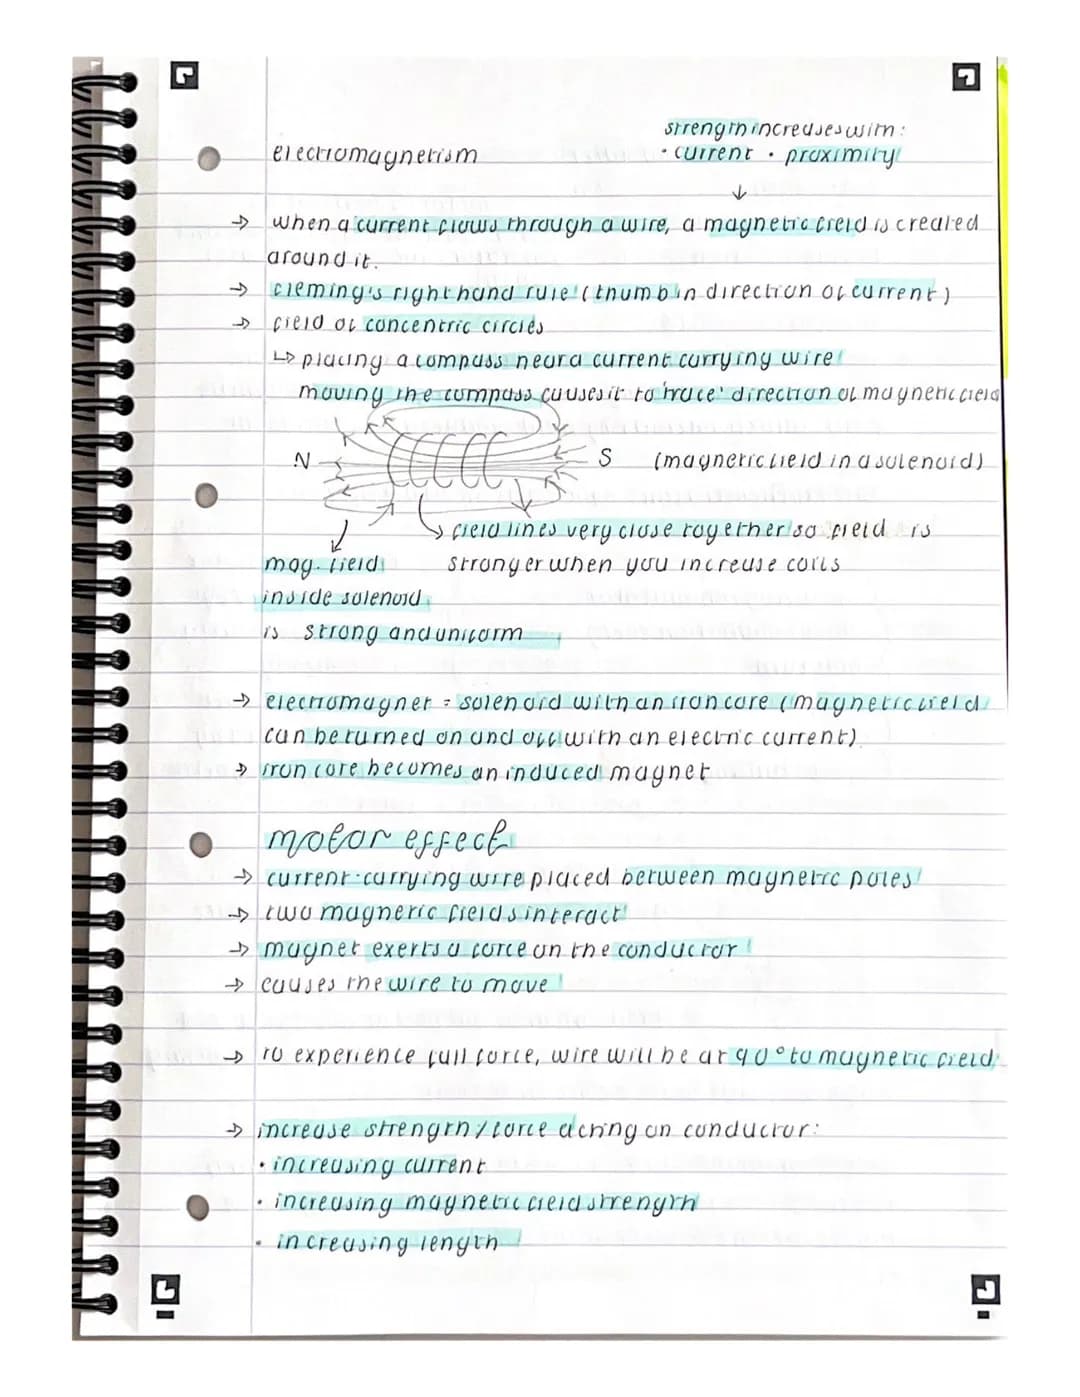 strength increases with:
electromagnetism
• current • proximity
↓
→ when a current flows through a wire, a magnetic field is created
around it.
→ fleming's right hand rule (thumb in direction of current)
→ field of concentric circles
↳ placing a compass near a current carrying wire
moving the compass causes it to 'trace' direction of magnetic field
N S (magnetic field in a solenoid)
field lines very close together so field is
mag. field stronger when you increase coils
inside solenoid
is strong and uniform
→ electromagnet = solenoid with an iron core (magnetic field
can be turned on and off with an electric current)
→ iron core becomes an induced magnet
motor effect
→ current-carrying wire placed between magnetic poles
→ two magnetic fields interact
→ magnet exerts a force on the conductor
→ causes the wire to move
→ to experience full force, wire will be at 90° to magnetic field
→ increase strength/force acting on conductor:
• increasing current
• increasing magnetic field strength
• increasing length